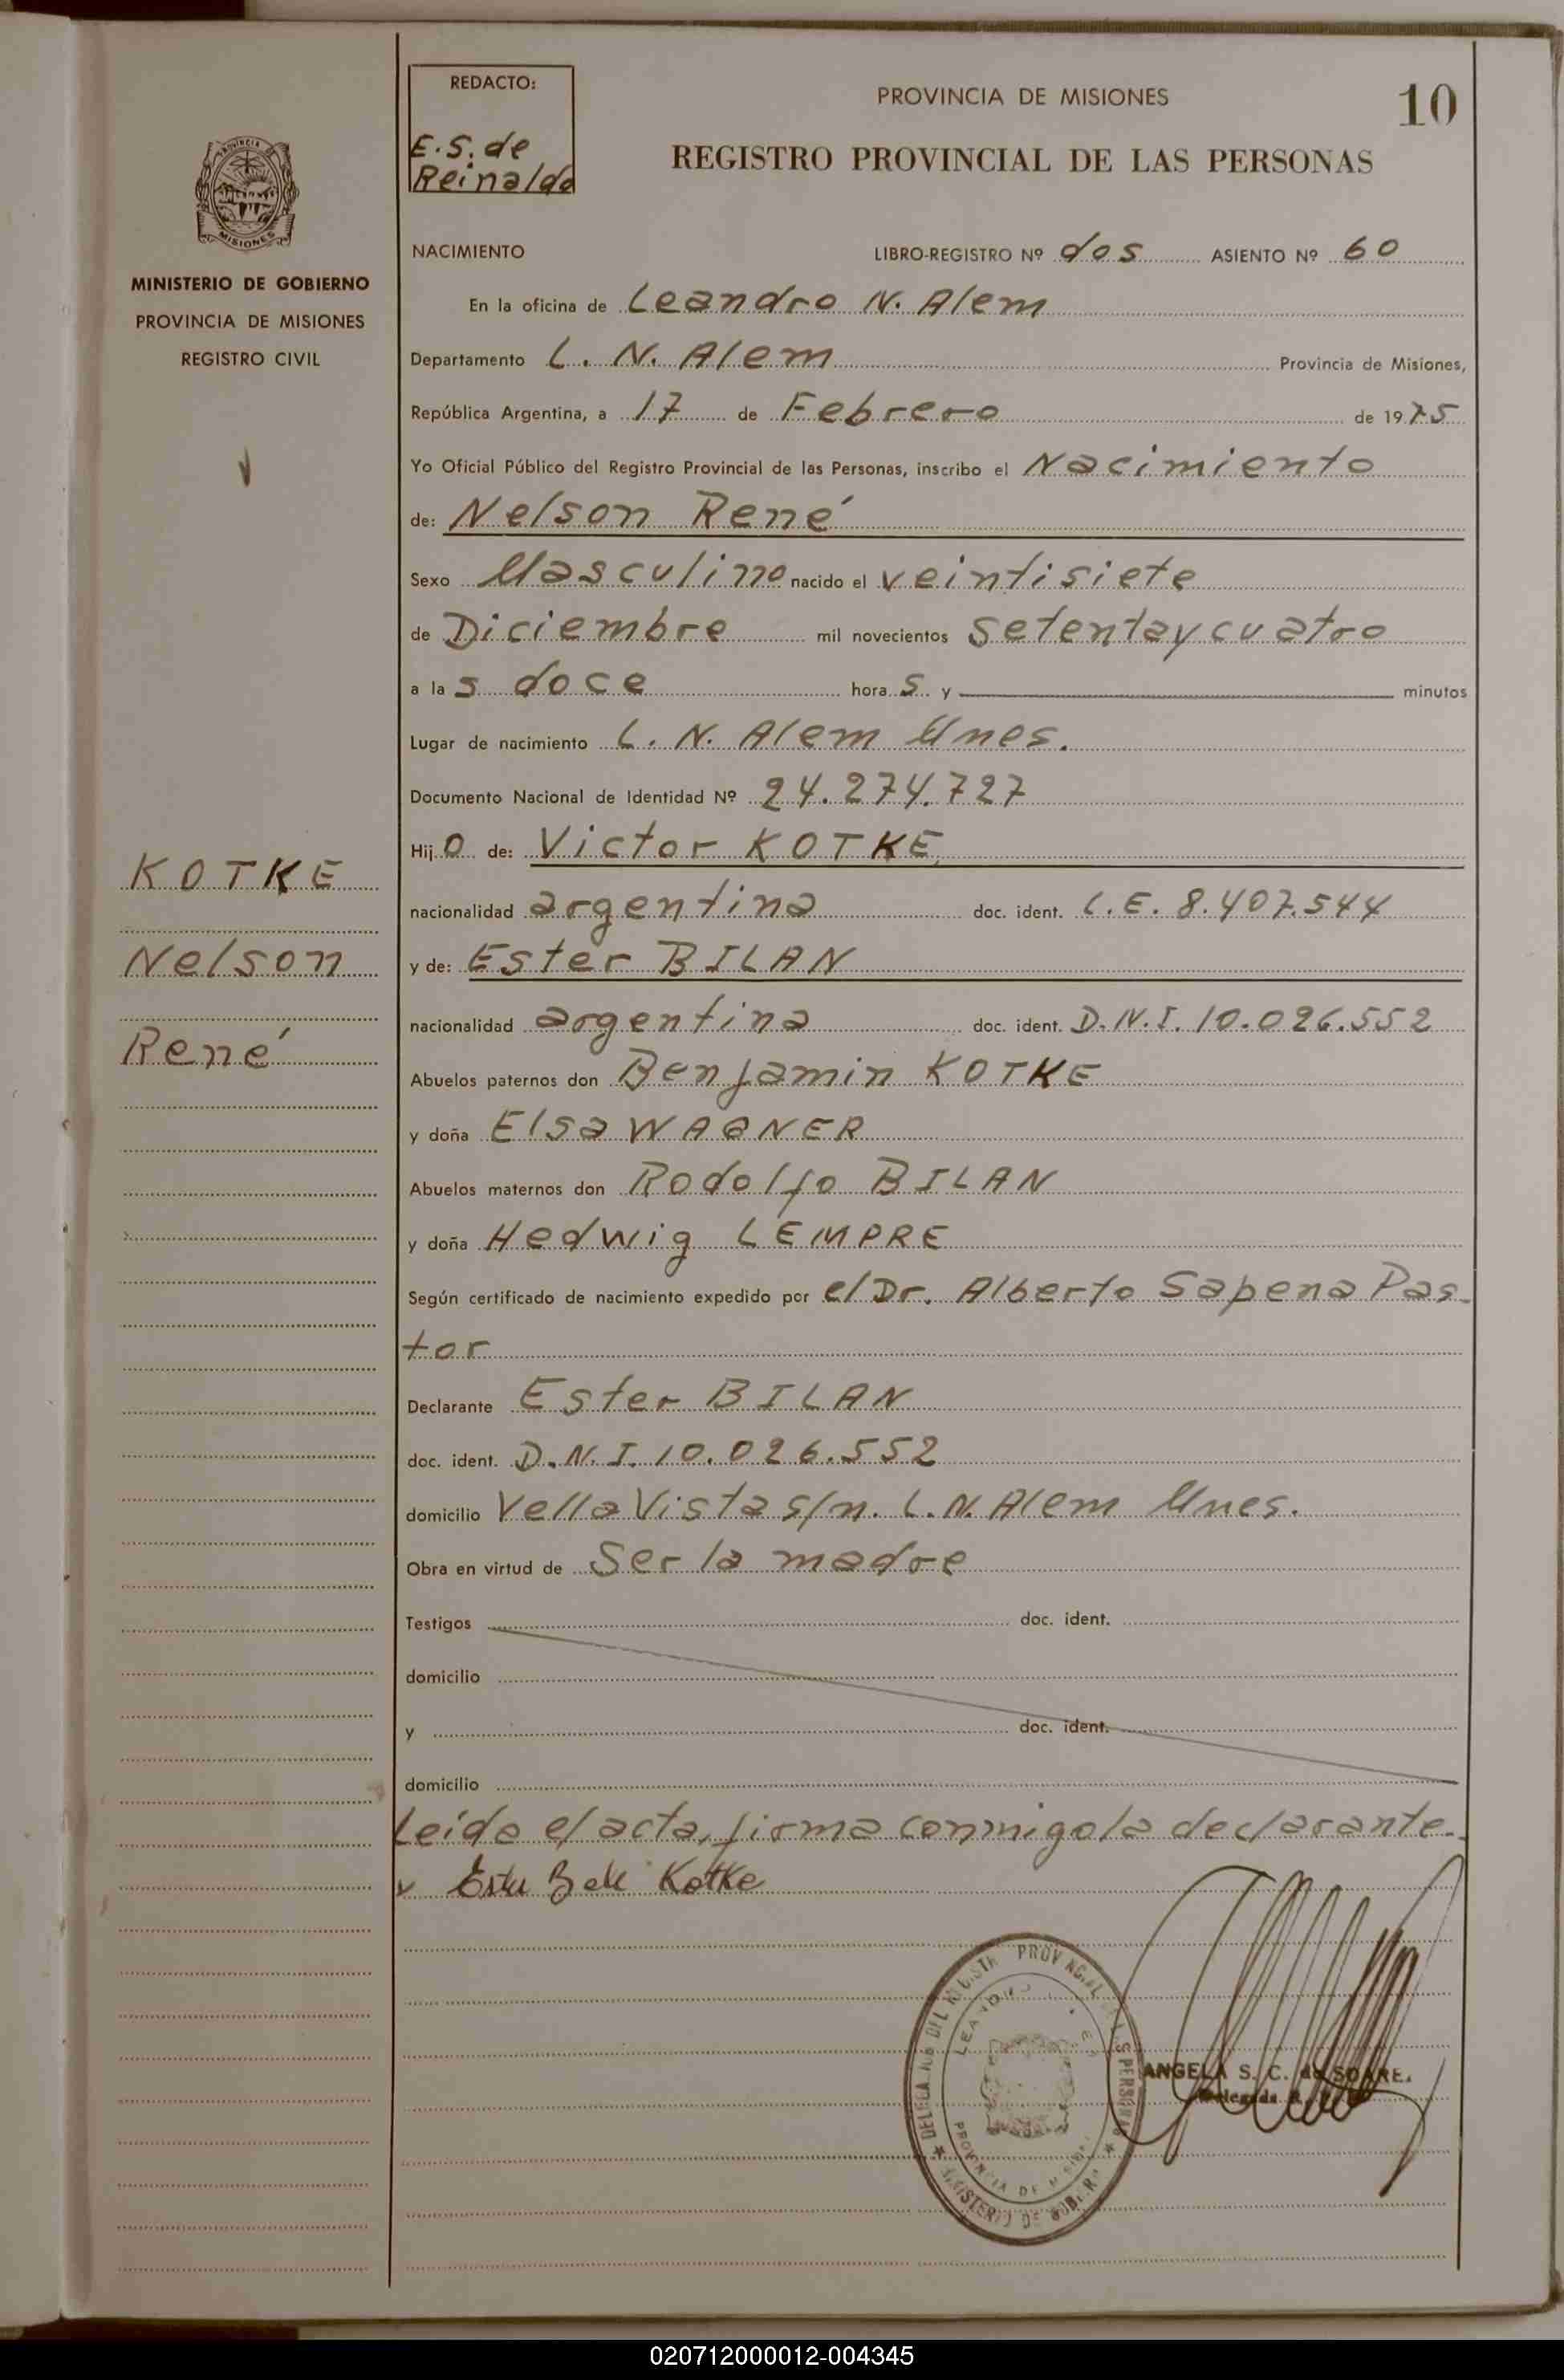 REDACTO:
E. S. de
Reinaldo
PROVINCIA DE MISIONES
10
REGISTRO PROVINCIAL DE LAS PERSONAS
MISIONES
MINISTERIO DE GOBIERNO
PROVINCIA DE MISIONES
REGISTRO CIVIL
NACIMIENTO LIBRO-REGISTRO Nº dos ASIENTO Nº 60
En la oficina de Leandro N. Alem
Departamento L. N. Alem Provincia de Misiones,
República Argentina, a 17 de Febrero de 1975
Yo Oficial Público del Registro Provincial de las Personas, inscribo el Nacimiento
de: Nelson René
Sexo Masculino nacido el veintisiete
de Diciembre mil novecientos setentaycuatro
a las doce horas y minutos
Lugar de nacimiento L. N. Alem Mnes.
Documento Nacional de Identidad Nº 24.274.727
Hijo de: Victor KOTKE
nacionalidad argentina doc. ident. L.E. 8.407.544
y de: Ester BILAN
nacionalidad argentina doc. ident. D.N.I. 10.026.552
Abuelos paternos don Benjamin KOTKE
y doña Elsa WAGNER
Abuelos maternos don Rodolfo BILAN
y doña Hedwig LEMPRE
Según certificado de nacimiento expedido por el Dr. Alberto Sapena Pas-
tor
Declarante Ester BILAN
doc. ident. D.N.I. 10.026.552
domicilio Vella Vista s/n. L.N. Alem Mnes.
Obra en virtud de Ser la madre
Testigos doc. ident.
domicilio
y doc. ident.
domicilio
Leída el acta, firma conmigo la declarante.
Kotke
KOTKE
Nelson
René
PROVINCIA DE
ANGELA S. C. de SOARE.
Delegada
020712000012-004345